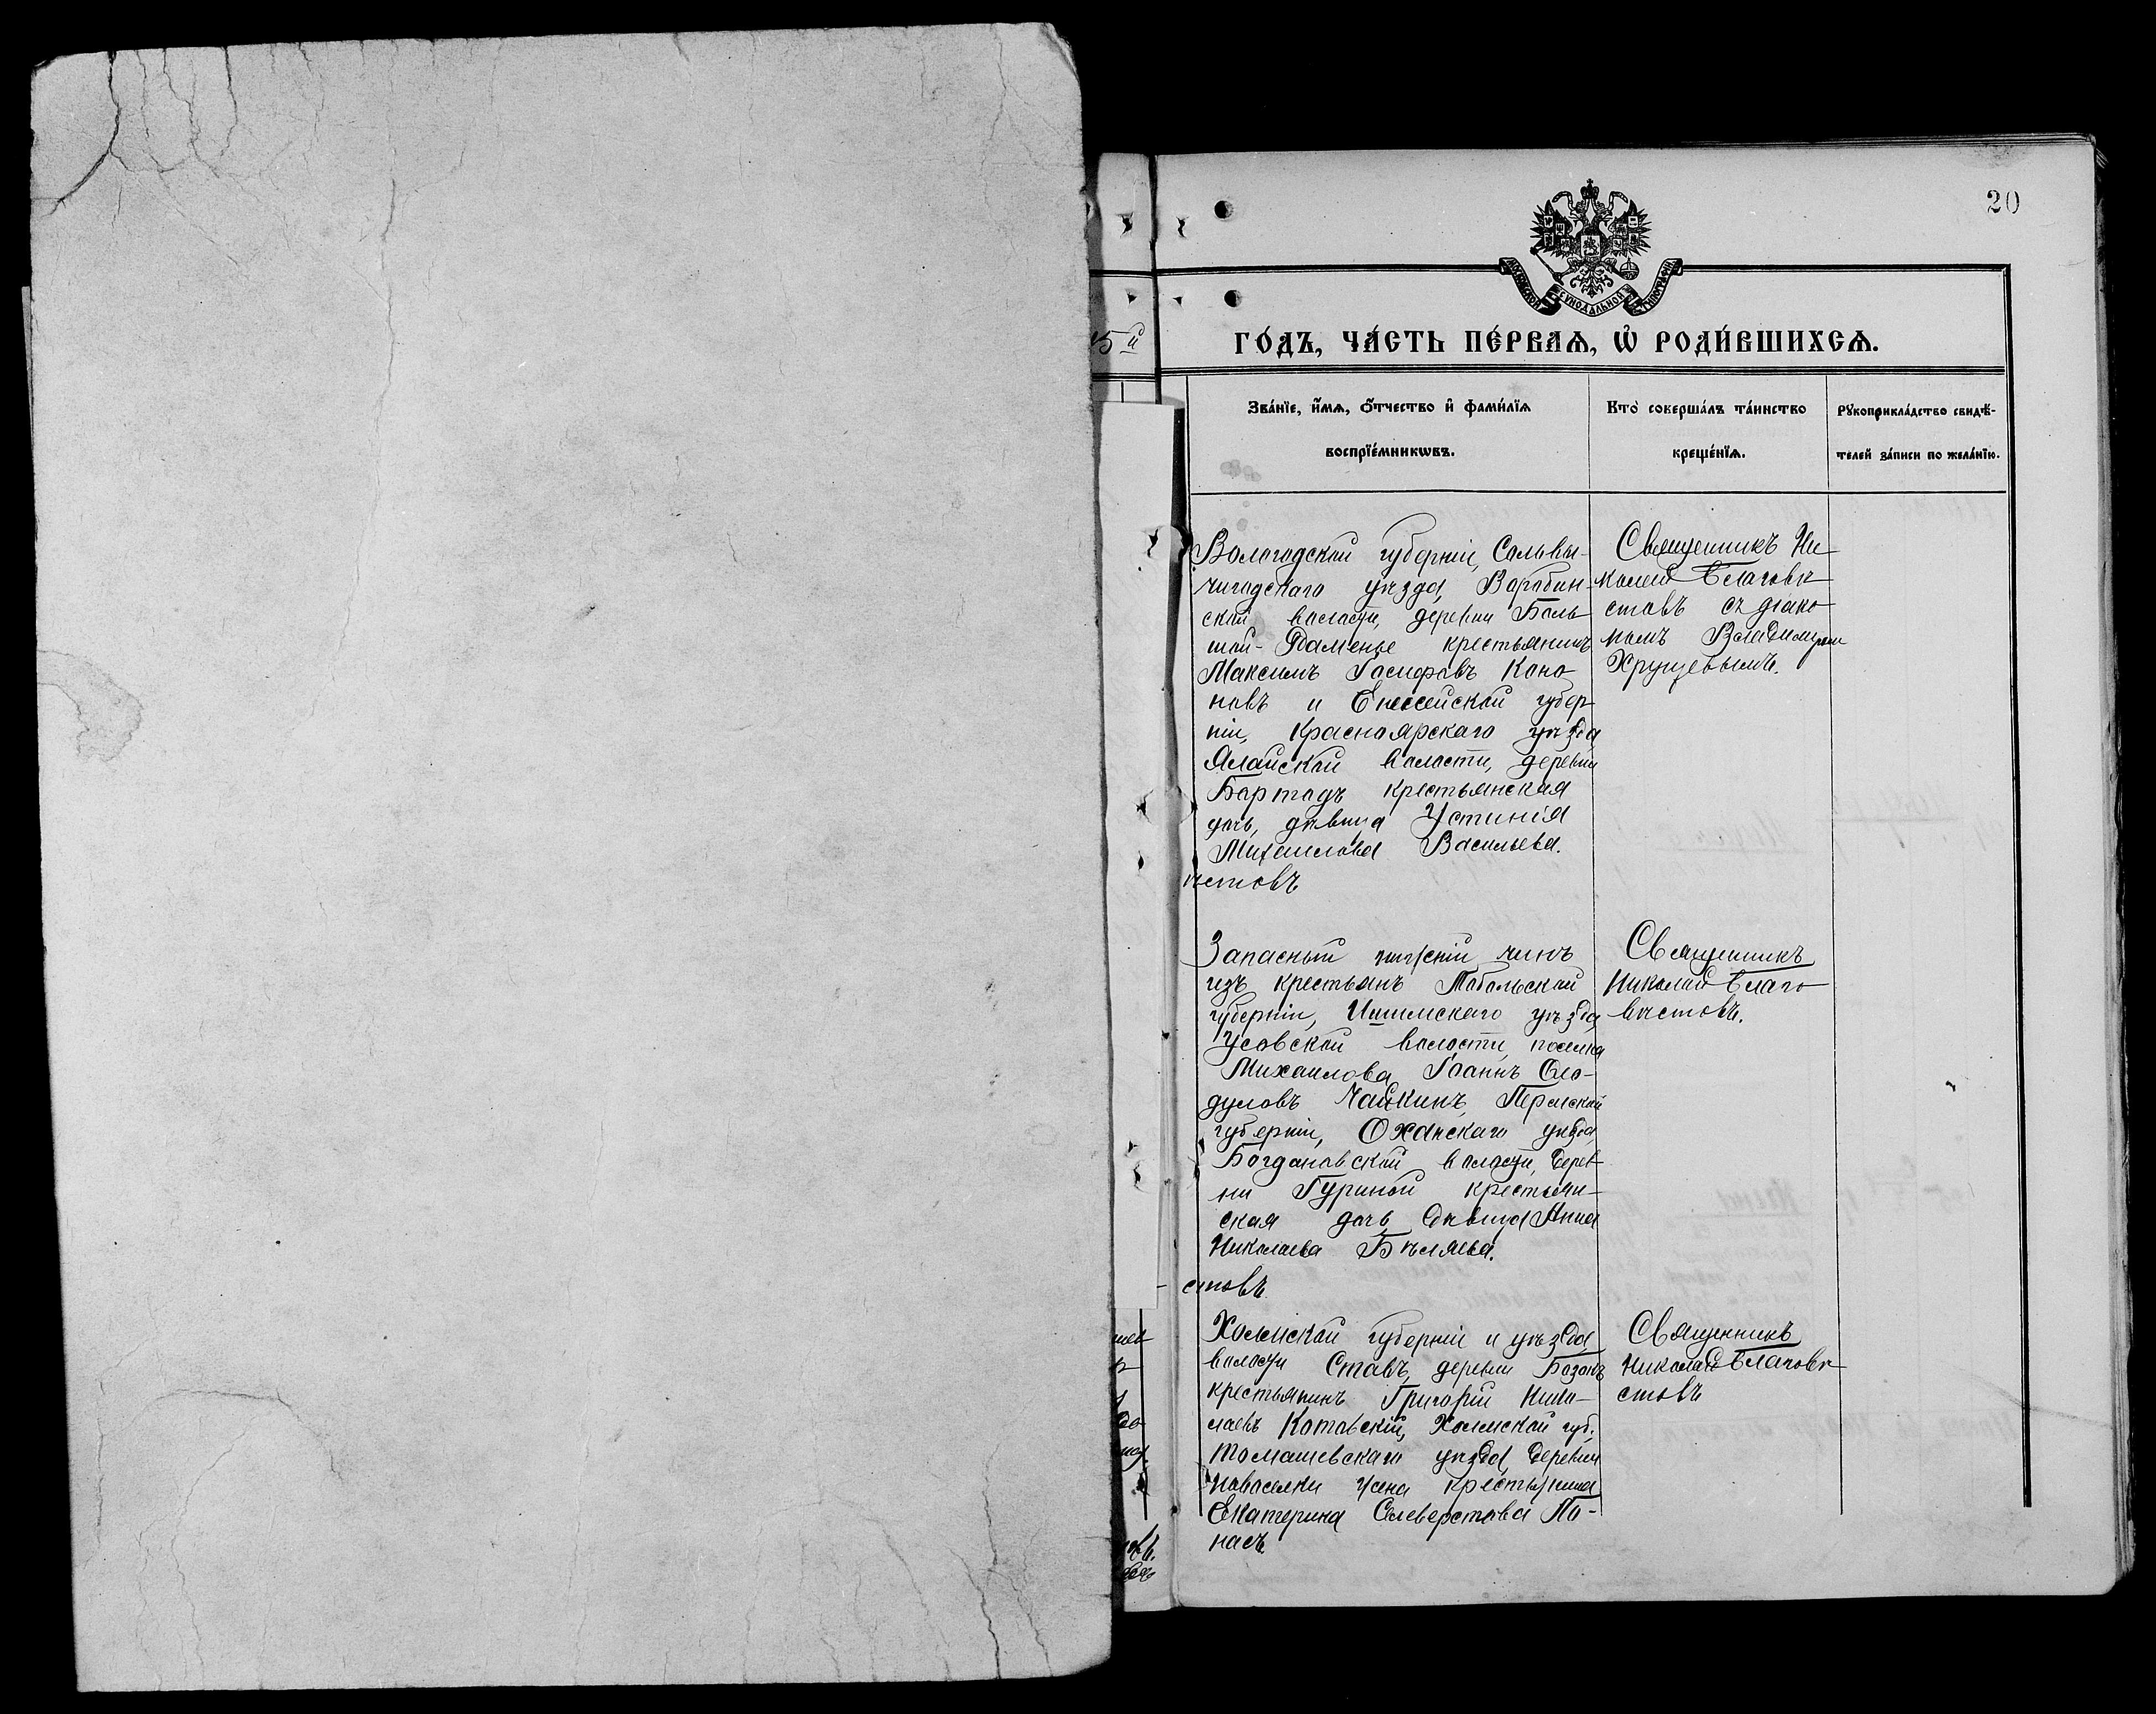 20
МОСКОВСКОЙ СУНОДАЛЬНОЙ ТИПОГРАФІИ
15й
ГО́ДЪ, ЧА́СТЬ ПЕ́РВАѦ, Ѡ҆ РОДИ́ВШИХСѦ.
Зва́нїе, и҆́мѧ, ѻ҆́тчество и҆ фамі́лїѧ
воспрїе́мникѡвъ.
Кто̀ соверша́лъ та́инство
креще́нїѧ.
Рꙋкоприкла́дство свидѣ́-
телей за́писи по жела́нїю.
Вологодской губерніи, Сольвы-
чегодскаго уѣзда, Воробин-
ской волости, деревни Боль-
шой- Раменье крестьянинъ
Максимъ Іосифовъ Коно-
новъ и Енисейской губер
ніи, Красноярскаго уѣзда
волости, деревни
Бартадъ крестьянская
дочь, дѣвица Устинія
Михаилова Васильева.
Священникъ Ни
колай Благовѣ
стовъ съ діако
номъ Владимиром
Хрущевымъ.
ѣстовъ
Запасный нижній чинъ
изъ крестьянъ Тобольской
губерніи, Ишимскаго уѣзда,
Усовской волости, поселка
Михаилова, Іоаннъ Ѳео-
дуловъ Чайкинъ, Пермской
губерніи, Оханскаго уѣзда,
Богдановской волости, дерев
ни Гуриной крестьян-
ская дочь, дѣвица Анна
Николаева Бѣляева.
Священникъ
Николай Благо
вѣстовъ.
стовъ
Холмской губерніи и уѣзда,
волости Ставъ, деревни
крестьянинъ Григорій Нико-
лаевъ Котовскій, Холмской губ.
Томашевскаго уѣзда, деревни
Новоселки жена крестьянина
Екатерина Селеверстова По-
насъ
Священникъ
Николай Благовѣ
стовъ